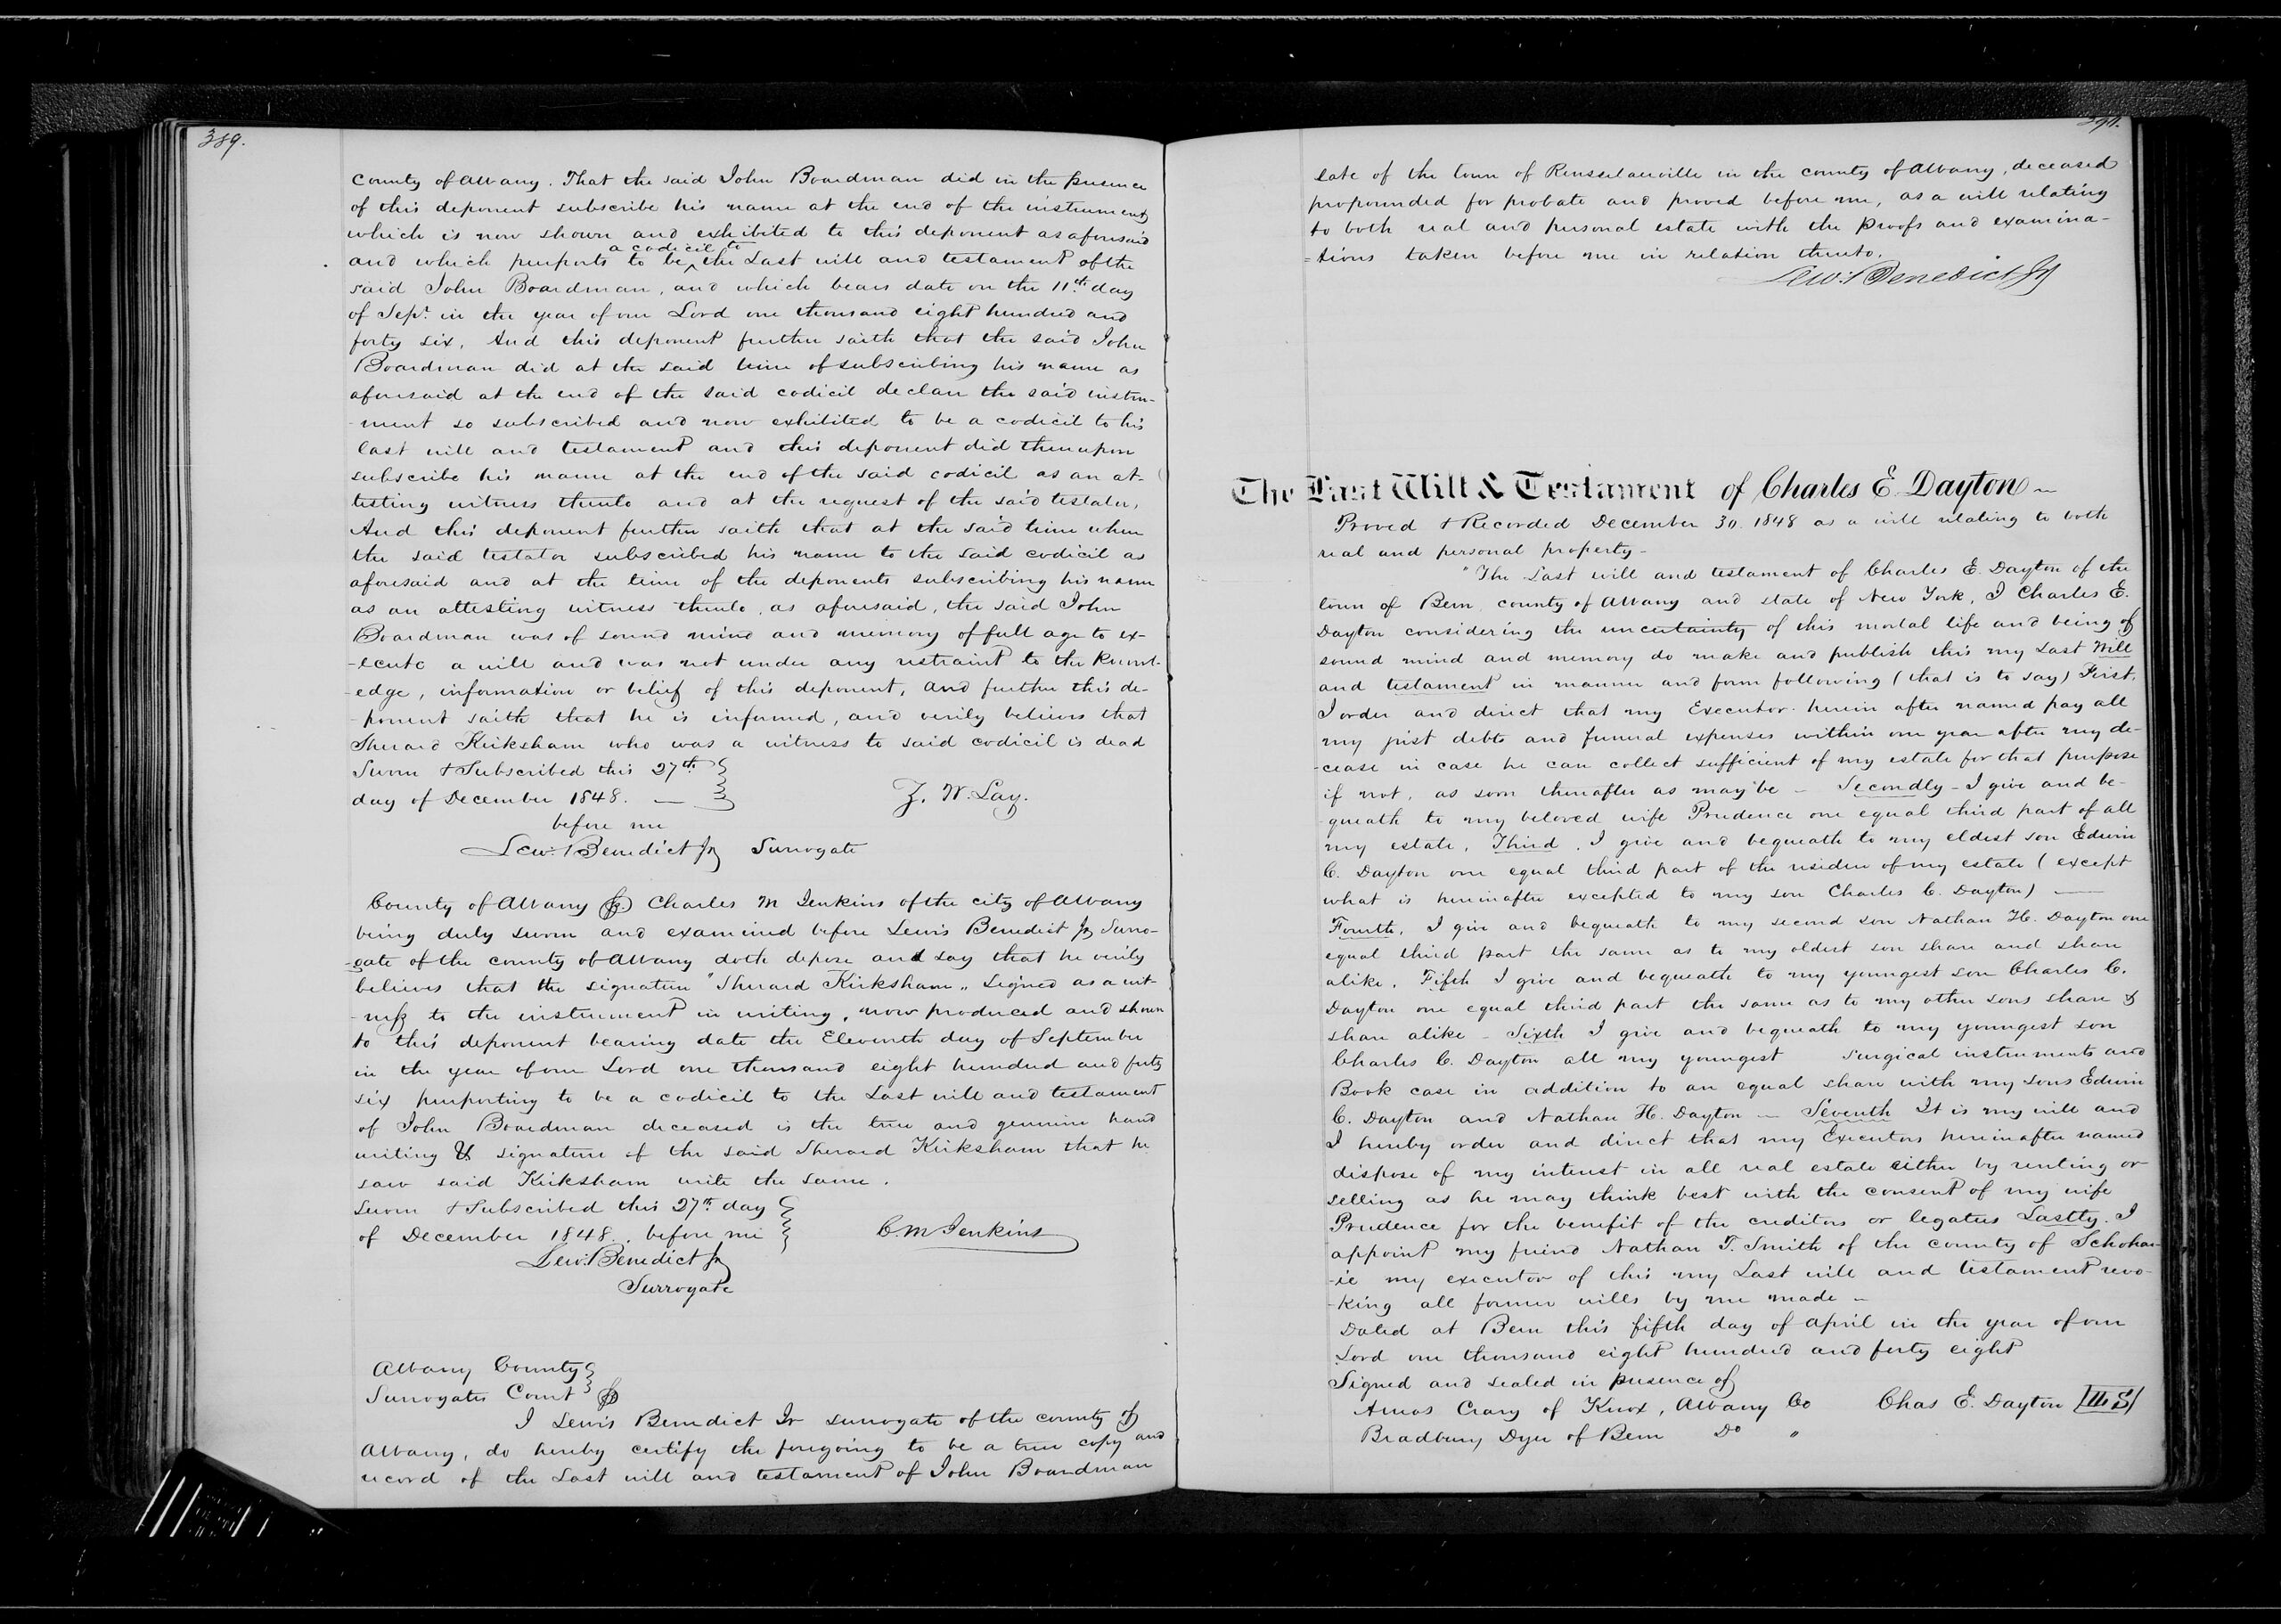 389.
County of Albany. That the said John Boardman did in the presence
of this deponent subscribe his name at the end of the instrument
which is now shown and exhibited to this deponent as aforesaid
a codicil to
and which purports to be ‸ the Last will and testament of the
said John Boardman, and which bears date on the 11th day
of Sepr. in the year of our Lord one thousand eight hundred and
forty six. And this deponent further saith that the said John
Boardman did at the said time of subscribing his name as
aforesaid at the end of the said codicil declare the said instru-
-ment so subscribed and now exhibited to be a codicil to his
last will and testament and this deponent did thereupon
subscribe his name at the end of the said codicil as an at-
testing witness thereto and at the request of the said testator,
And this deponent further saith that at the said time when
the said testator subscribed his name to the said codicil as
aforesaid and at the time of the deponents subscribing his name
as an attesting witness thereto, as aforesaid, the said John
Boardman was of sound mind and memory of full age to ex-
-ecute a will and was not under any restraint to the knowl-
-edge, information or belief of this deponent, and further this de-
-ponent saith that he is informed, and verily believes that
Sherard Kirksham who was a witness to said codicil is dead
Sworn & Subscribed this 27th
day of December 1848. —
Z. W. Lay.
before me
Lew: Benedict Jr Surrogate
County of Albany ss. Charles M Jenkins of the city of Albany
being duly sworn and examined before Lewis Benedict Jr Surro-
-gate of the county of Albany doth depose and say that he verily
believes that the signature "Sherard Kirksham" signed as a wit-
-ness to the instrument in writing, now produced and shown
to this deponent bearing date the Eleventh day of September
in the year of our Lord one thousand eight hundred and forty
six purporting to be a codicil to the Last will and testament
of John Boardman deceased is the true and genuine hand
writing & signature of the said Sherard Kirksham that he
saw said Kirksham write the same.
Sworn & Subscribed this 27th day
of December 1848, before me
C. M Jenkins
Lew: Benedict Jr
Surrogate
Albany County
Surrogates Court ss
I Lewis Benedict Jr surrogate of the county of
Albany, do hereby certify the foregoing to be a true copy and
record of the Last will and testament of John Boardman
late of the town of Rensselaerville in the county of Albany, deceased
propounded for probate and proved before me, as a will relating
to both real and personal estate with the proofs and examina-
=tions taken before me in relation thereto.
Lew: Benedict Jr
The Last Will & Testament of Charles E. Dayton —
Proved & Recorded December 30. 1848 as a will relating to both
real and personal property —
"The Last will and testament of Charles E. Dayton of the
town of Bern, county of Albany and state of New York, I Charles E.
Dayton considering the uncertainty of this mortal life and being of
sound mind and memory do make and publish this my Last Will
and testament in manner and form following (that is to say) First,
I order and direct that my Executor herein after named pay all
my just debts and funeral expenses within one year after my de-
-cease in case he can collect sufficient of my estate for that purpose
if not, as soon thereafter as may be — Secondly - I give and be-
queath to my beloved wife Prudence one equal third part of all
my estate, Third. I give and bequeath to my eldest son Edwin
C. Dayton one equal third part of the residue of my estate (except
what is hereinafter excepted to my son Charles C. Dayton) —
Fourth, I give and bequeath to my second son Nathan H. Dayton one
equal third part the same as to my oldest son share and share
alike. Fifth I give and bequeath to my youngest son Charles C.
Dayton one equal third part the same as to my other sons share &
share alike — Sixth I give and bequeath to my youngest son
Charles C. Dayton all my youngest surgical instruments and
Book case in addition to an equal share with my sons Edwin
C. Dayton and Nathan H. Dayton — Seventh It is my will and
I hereby order and direct that my Executors hereinafter named
dispose of my interest in all real estate either by renting or
selling as he may think best with the consent of my wife
Prudence for the benefit of the creditors or legatees Lastly. I
appoint my friend Nathan T. Smith of the county of Schohar-
-ie my executor of this my Last will and testament revo-
-king all former wills by me made —
Dated at Bern this fifth day of April in the year of our
Lord one thousand eight hundred and forty eight
Signed and sealed in presence of
Amos Crary of Knox, Albany Co Chas E. Dayton
Bradbury Dyer of Bern Do "